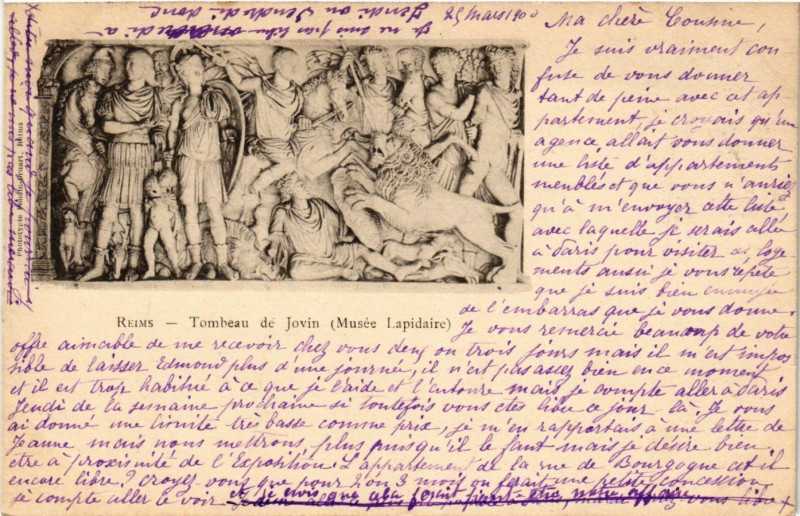 25 Mars 1900
Ma chère Cousine,
Je suis vraiment con
fuse de vous donner
tant de peine avec cet ap
partement, je croyais qu'un
agence, allait vous donner
une liste d'appartements
meublés et que vous n'auriez
qu'à m'envoyer cette liste
avec laquelle je serais allée
à Paris pour visiter ces loge
ments aussi je vous répète
que je suis bien ennuyée
de l'embarras que je vous donne.
Reims — Tombeau de Jovin (Musée Lapidaire)
Je vous remercie beaucoup de votre
offre aimable de me recevoir chez vous deux ou trois jours mais il m'est impos
sible de laisser Edmond plus d'une journée, il n'est pas assez bien en ce moment
et il est trop habitué à ce que je l'aide et l'entoure mais je compte aller à Paris
Jeudi de la semaine prochaine si toutefois vous êtes libre ce jour là. Je vous
ai donné une limite très basse comme prix, je m'en rapportais à une lettre de
Jeanne mais nous mettrons plus puisqu'il le faut mais je désire bien
être à proximité de l'Exposition. L'appartement de la rue de Bourgogne est il
encore libre? Croyez vous que pour 2 ou 3 mois on ferait une petite concession
je compte aller le voir et je crois que cela ferait peut-être notre affaire
Jeudi ou Vendredi donc
Je ne suis pas libre